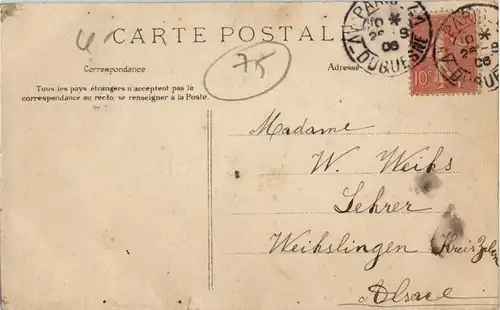 CARTE POSTALE
75
Correspondance
Adresse
Tous les pays étrangers n'acceptent pas la
correspondance au recto, se renseigner à la Poste.
PARIS
26-9
06
AV. DUQUESNE
PARIS
26-9
06
10c
Madame
W. Weihs
Lehrer
Weihslingen Kreis
Alsace